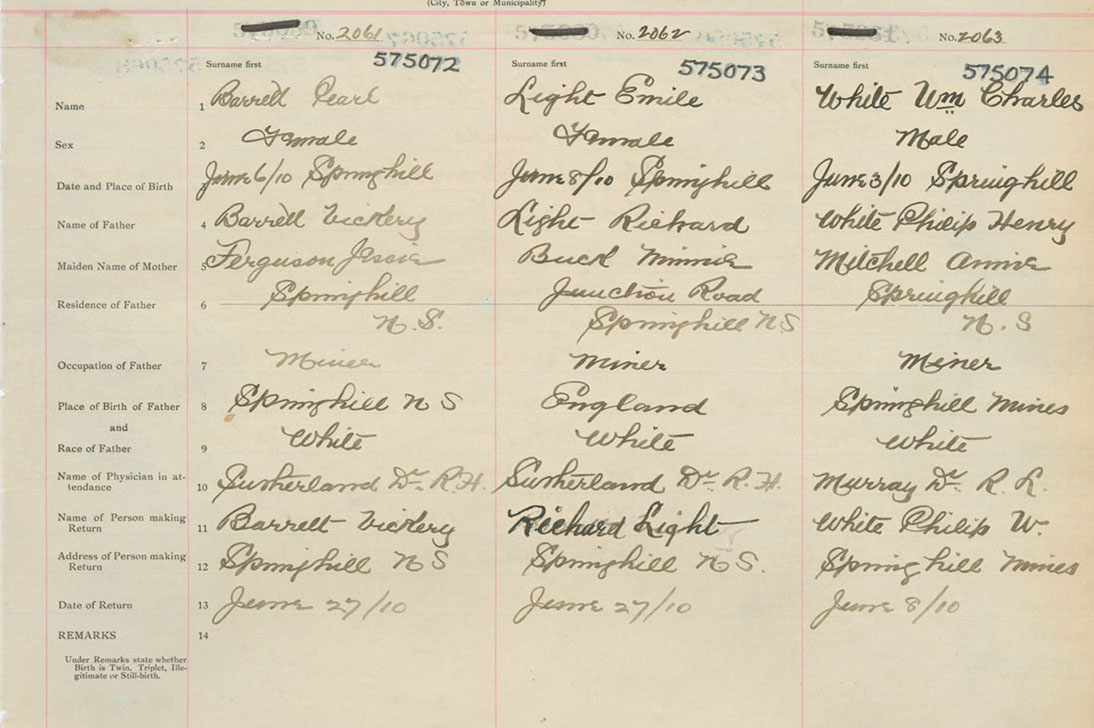 (City, Town or Municipality)
No. 2061 No. 2062 No. 2063
575072 575073 575074
Surname first Surname first Surname first
Name 1 Barrett Pearl Light Emile White Wm Charles
Sex 2 Female Female Male
Date and Place of Birth June 6/10 Springhill June 8/10 Springhill June 3/10 Springhill
Name of Father 4 Barrett Vickery Light Richard White Philip Henry
Maiden Name of Mother 5 Ferguson Jessie Buck Minnie Mitchell Annie
Residence of Father 6 Springhill Junction Road Springhill
N.S. Springhill NS N.S
Occupation of Father 7 Miner Miner Miner
Place of Birth of Father 8 Springhill N S England Springhill Mines
and
Race of Father 9 White White White
Name of Physician in at-
tendance 10 Sutherland Dr. R.H. Sutherland Dr. R.H. Murray Dr. R. L.
Name of Person making
Return 11 Barrett Vickery Richard Light White Philip W.
Address of Person making
Return 12 Springhill N S Springhill N S. Springhill Mines
Date of Return 13 June 27/10 June 27/10 June 8/10
REMARKS 14
Under Remarks state whether
Birth is Twin, Triplet, Ille-
gitimate or Still-birth.